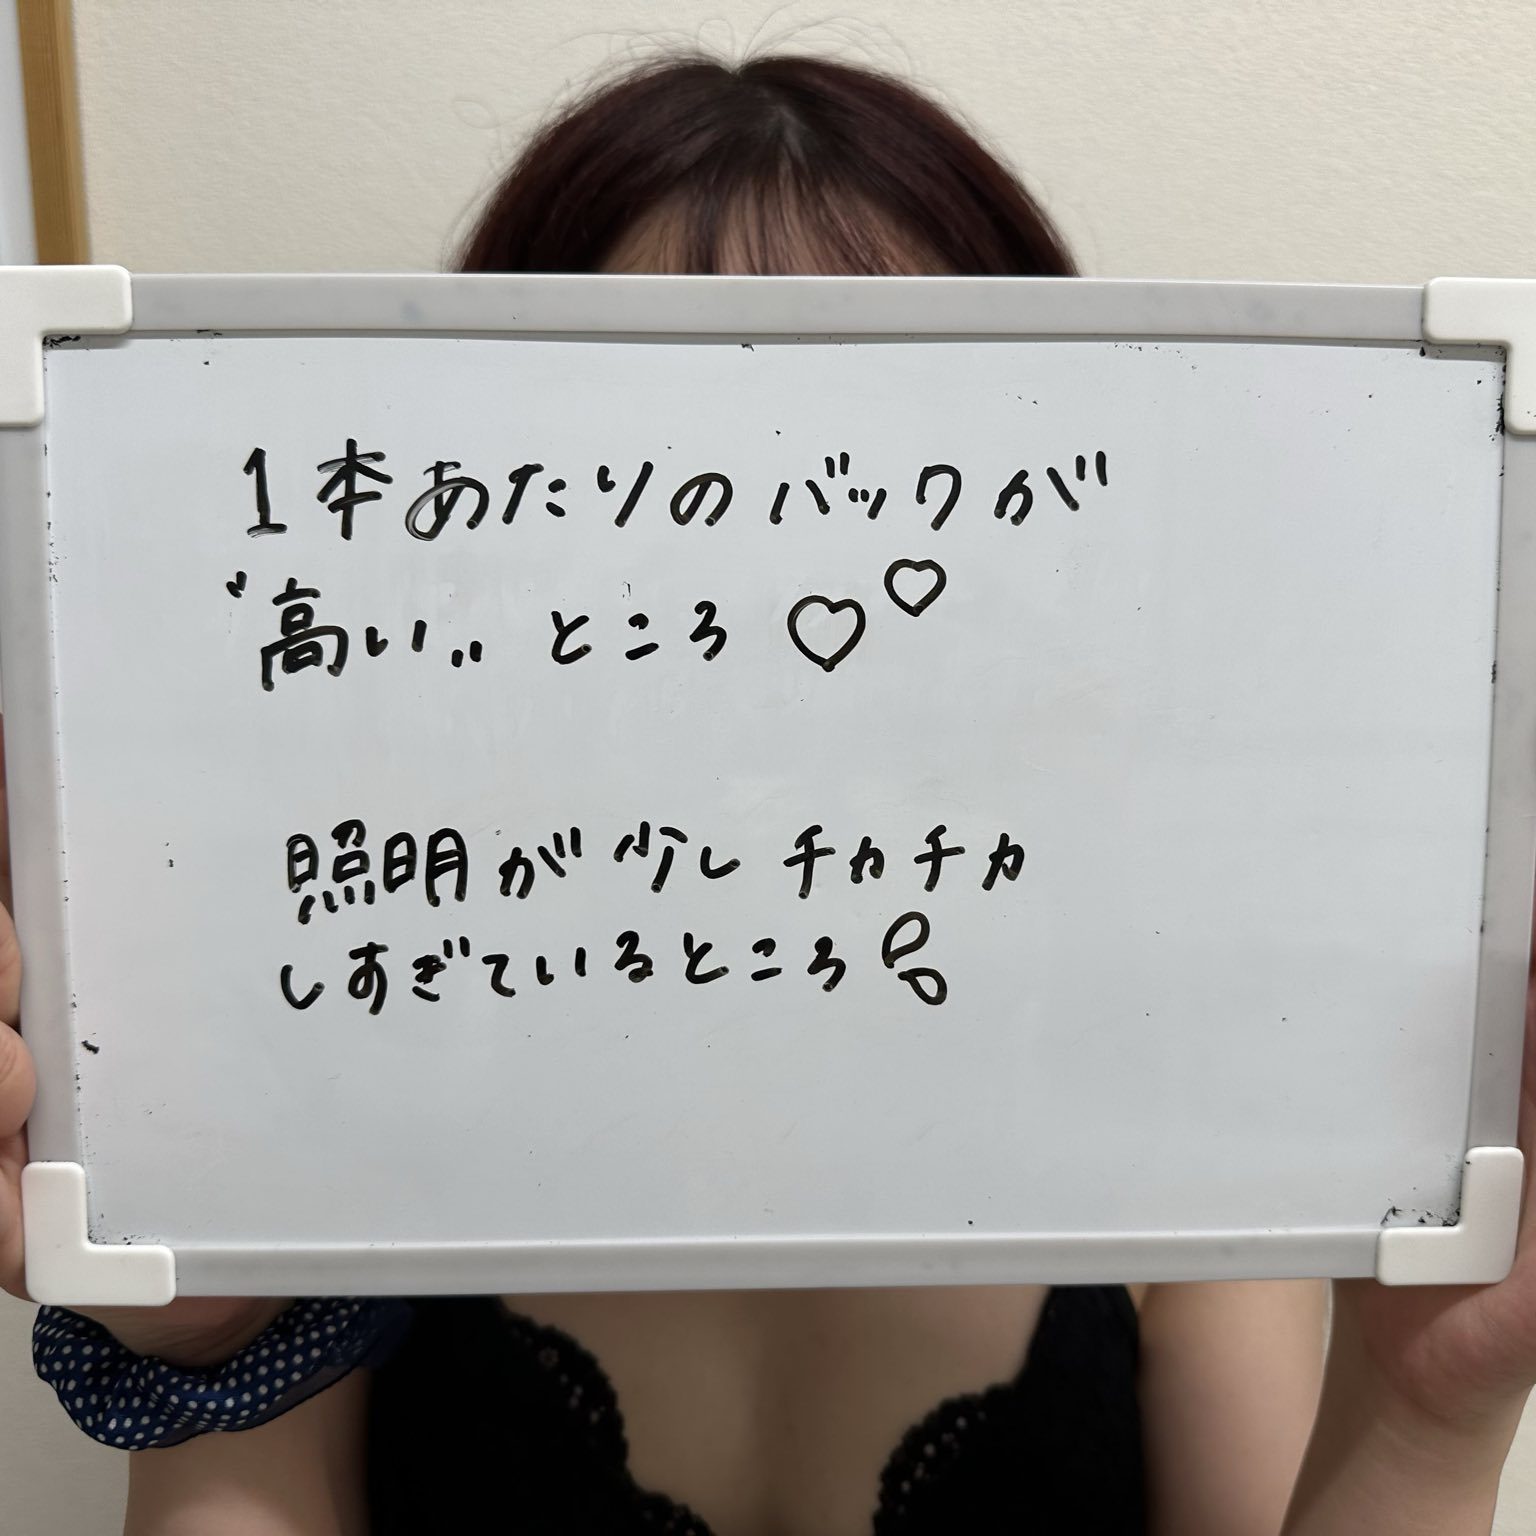 1本あたりのバックが
"高い"ところ♡♡
照明が少しチカチカ
しすぎているところ